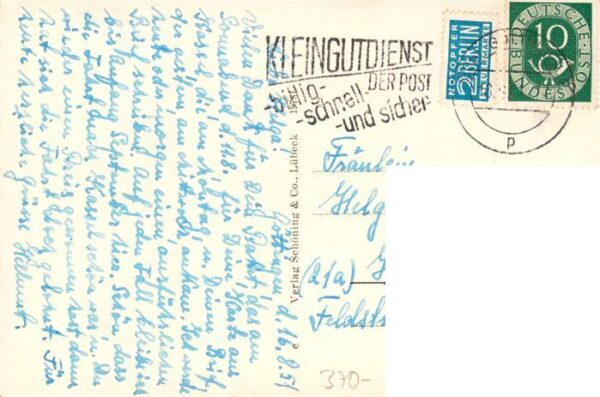 Göttingen, d. 16.8.54
Liebe Helga!
Vielen Dank für Dein Paket, das am
Sonnabend d. 14.8. für Deine Karte aus
Kassel, die am Montag, u. Deinen Brief,
der am Mittwoch ankam. Ich werde
heute oder morgen einen ausführlichen
Brief schreiben. Auf jeden Fall bleibe ich
bis Anfang September hier. Schön, dass
die Fahrt durch Kassel schön war u. Du
wieder einen Preis gewonnen hast, dann
hat sich die Fahrt doch gelohnt. Für
heute herzliche Grüsse Helmut.
Verlag Schöning & Co., Lübeck
KLEINGUTDIENST
DER POST
-billig-
-schnell-
-und sicher
NOTOPFER
2 BERLIN
STEUERMARKE
DEUTSCHE
BUNDESPOST
10
p
Fräulein
Helg
(21a)
Feldst
370-